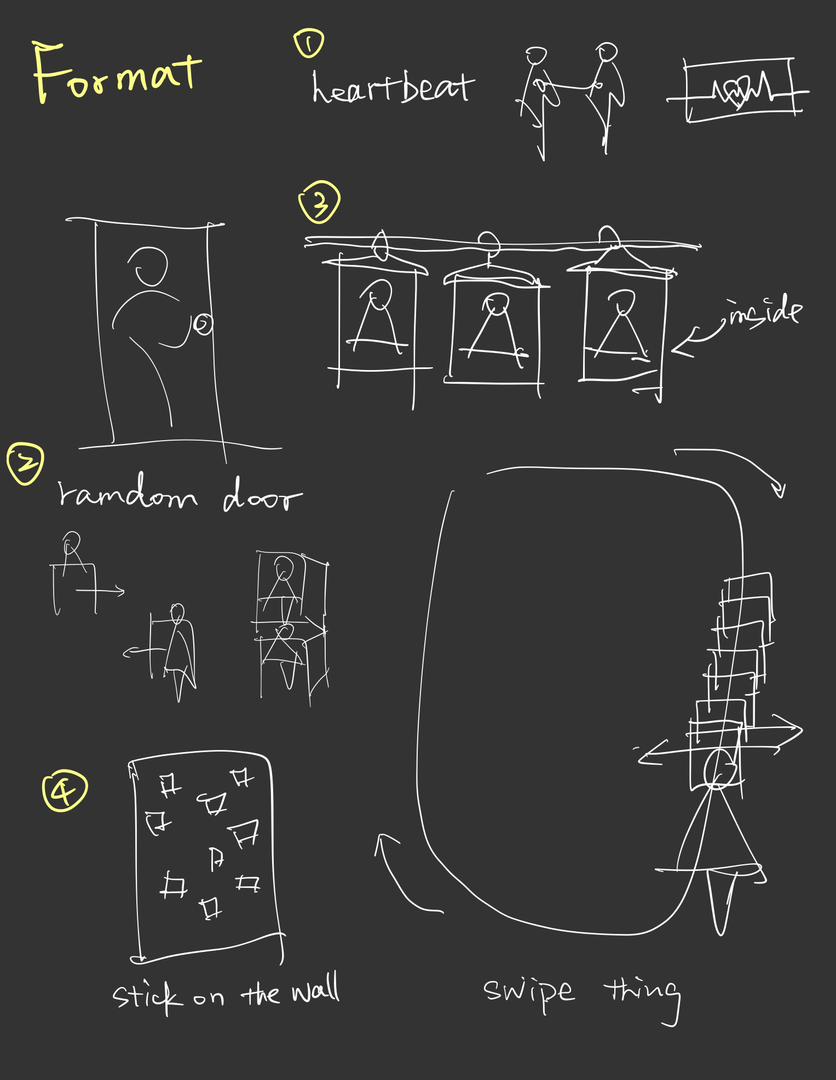 Format
①
heartbeat
③
inside
②
ramdom door
④
stick on the wall
swipe thing